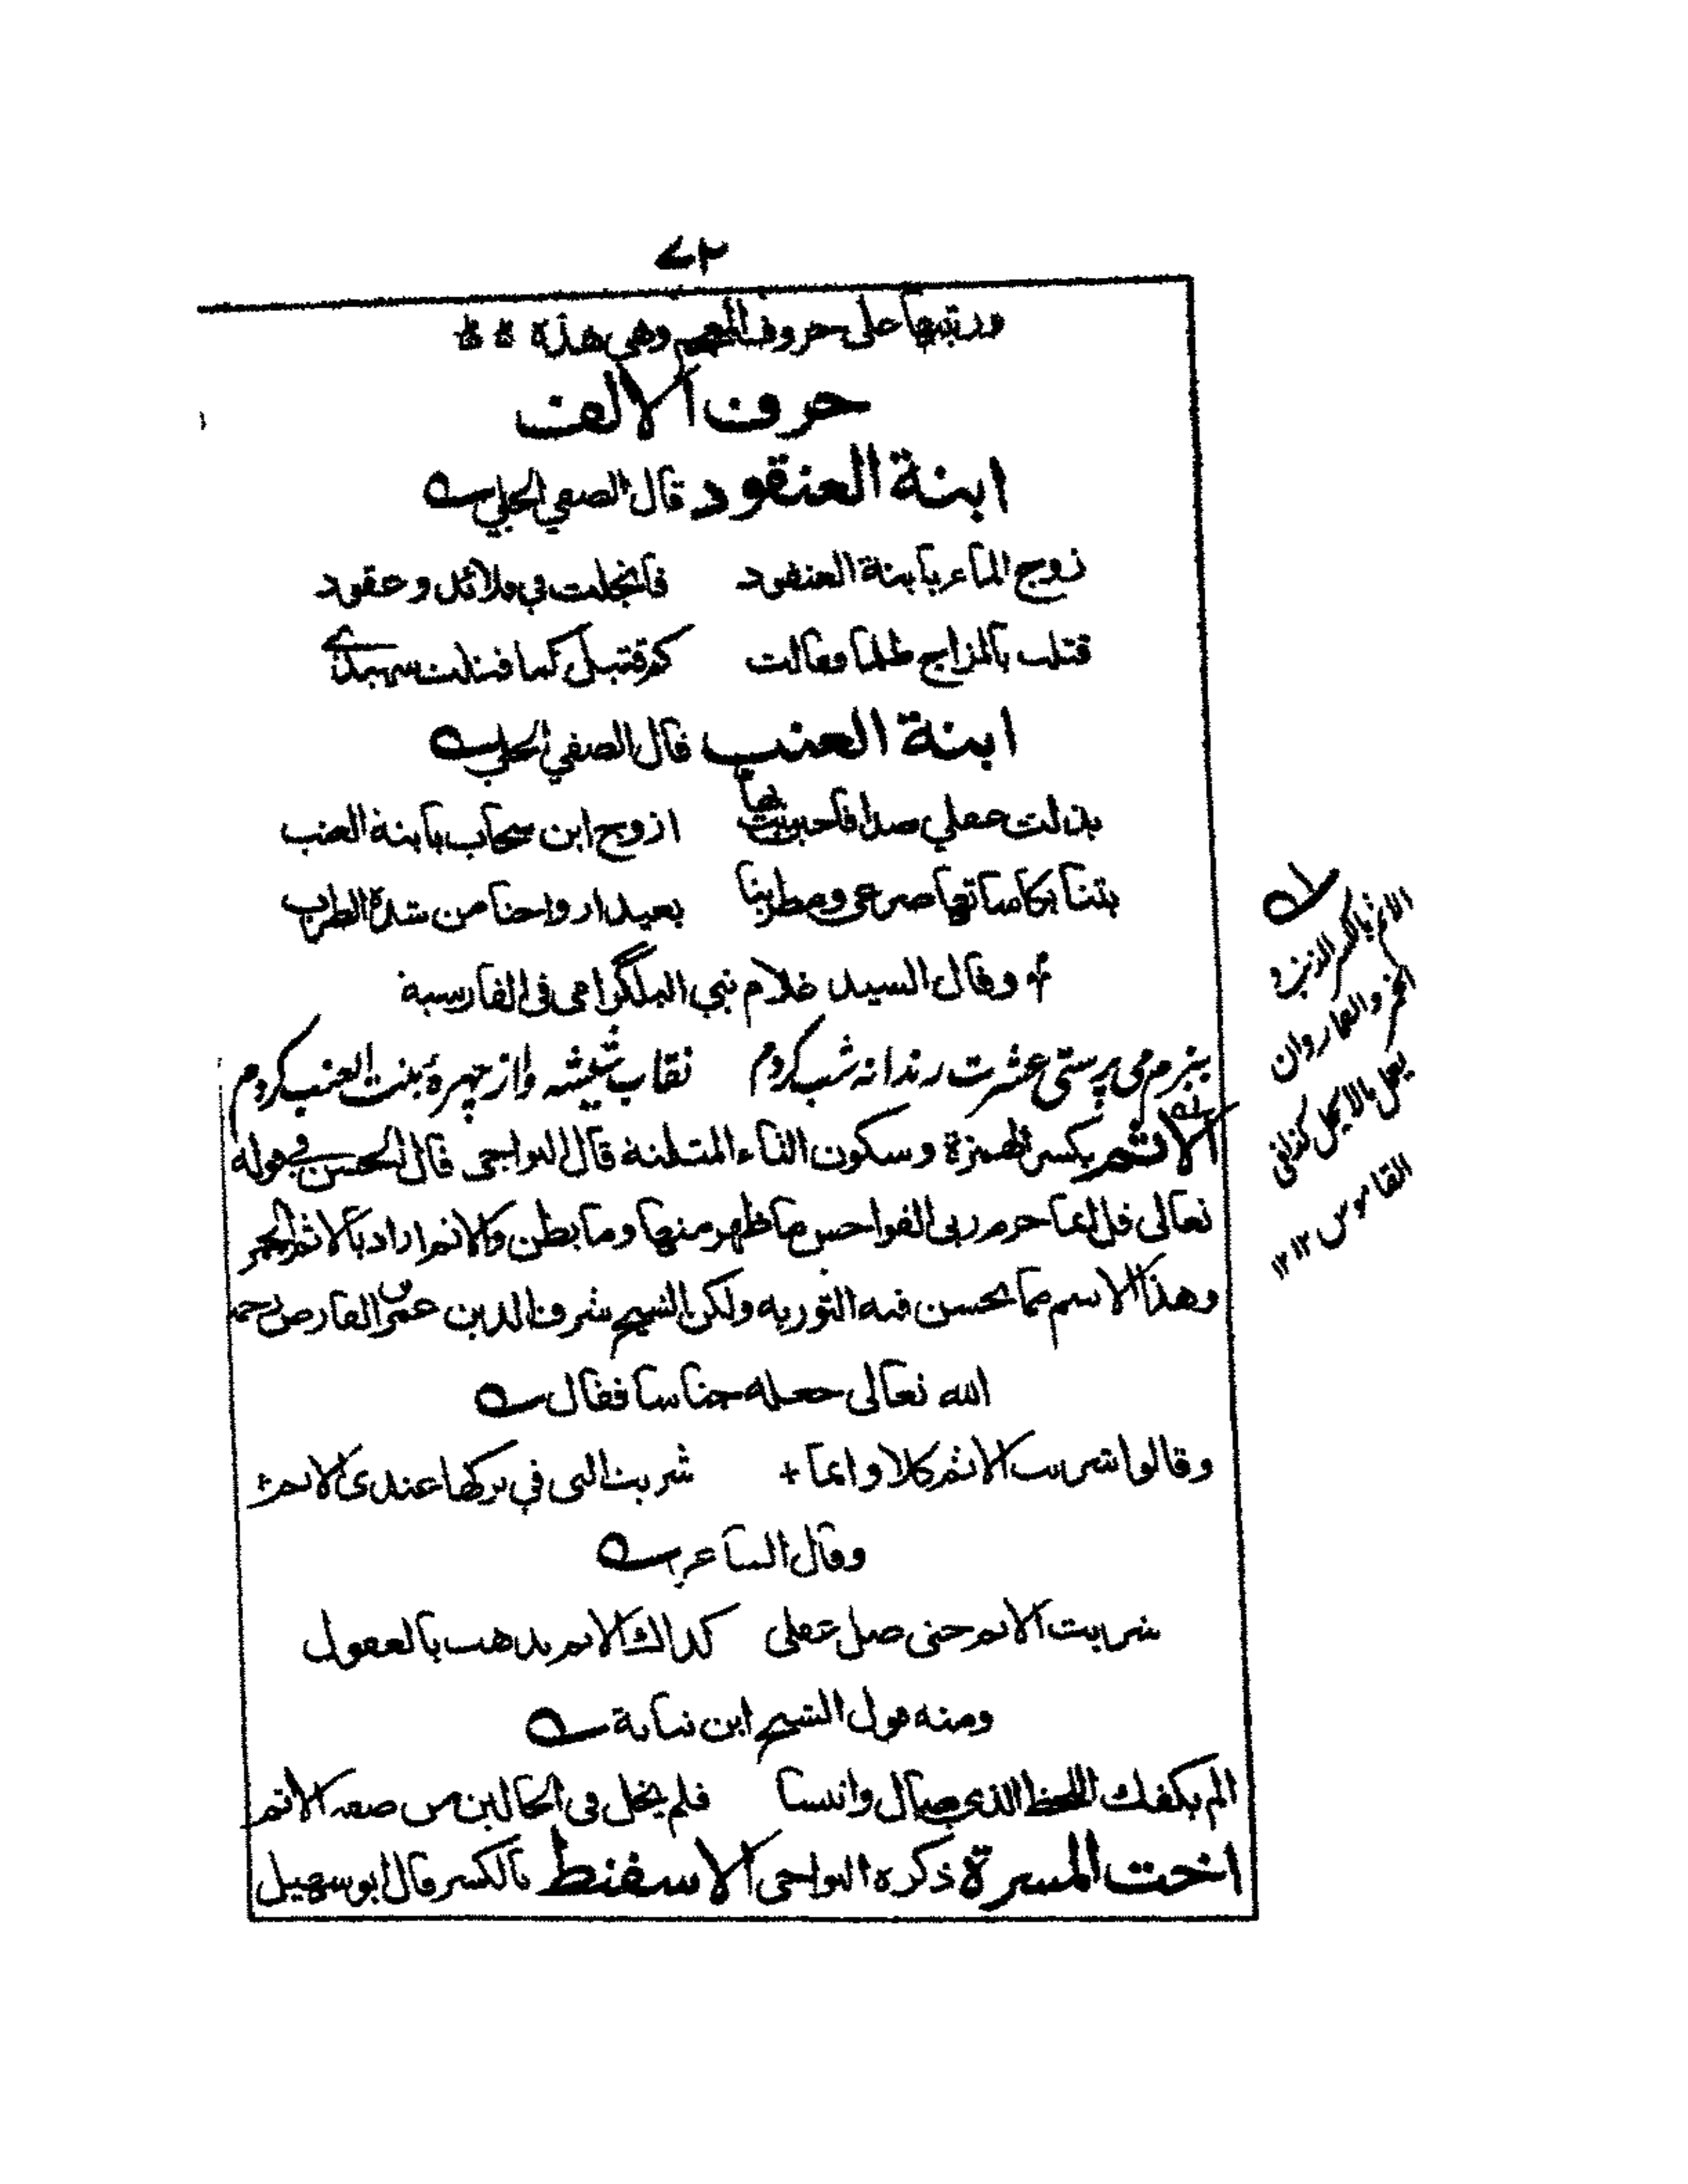 ٧٢
ورتبتها على حروف المعجم وهي هذه
حرف الالف
ابنة العنقود قال الصفي الحلي
زوج الماء بابنة العنقود فانجلت في قلائد وعقود
قتلت بالمزاج ظلما وقالت كم قتيل كما قتلت شهيد
ابنة العنب قال الصفي الحلي
بذلت عقلي صداقا حين بت بها ازوج ابن سحاب بابنة العنب
بتنا بكاساتها صرعى ومطربنا يعيد ارواحنا من شدة الطرب
وقال السيد غلام نبي البلگرامي في الفارسية
ببزم می پرستی عشرت رندانه شب کردم نقاب شیشه واز چهرهٔ بنت العنب کردم
الاثم بكسر الهمزة وسكون الثاء المثلثة قال النواجي قال الحسن في قوله
تعالى قل انما حرم ربي الفواحش ما ظهر منها وما بطن والاثم اراد بالاثم الخمر
وهذا الاسم مما يحسن فيه التورية ولكن الشيخ شرف الدين عمر الفارض رحمه
الله تعالى جعله جناسا فقال
وقالوا شربت الاثم كلا وانما شربت التي في تركها عندي الاثم
وقال الشاعر
شربت الاثم حتى ضل عقلي كذاك الاثم يذهب بالعقول
ومنه قول الشيخ ابن نباتة
الم يكفك اللحظ الذي صال وانتشا فلم يخل في الحالين من صفة الاثم
اخت المسرة ذكره النواجي الاسفنط بالكسر قال ابو سهيل
الاثم بالكسر الذنب و
الخمر والقمار وان
يعمل ما لا يحل كذا في
القاموس ١٢